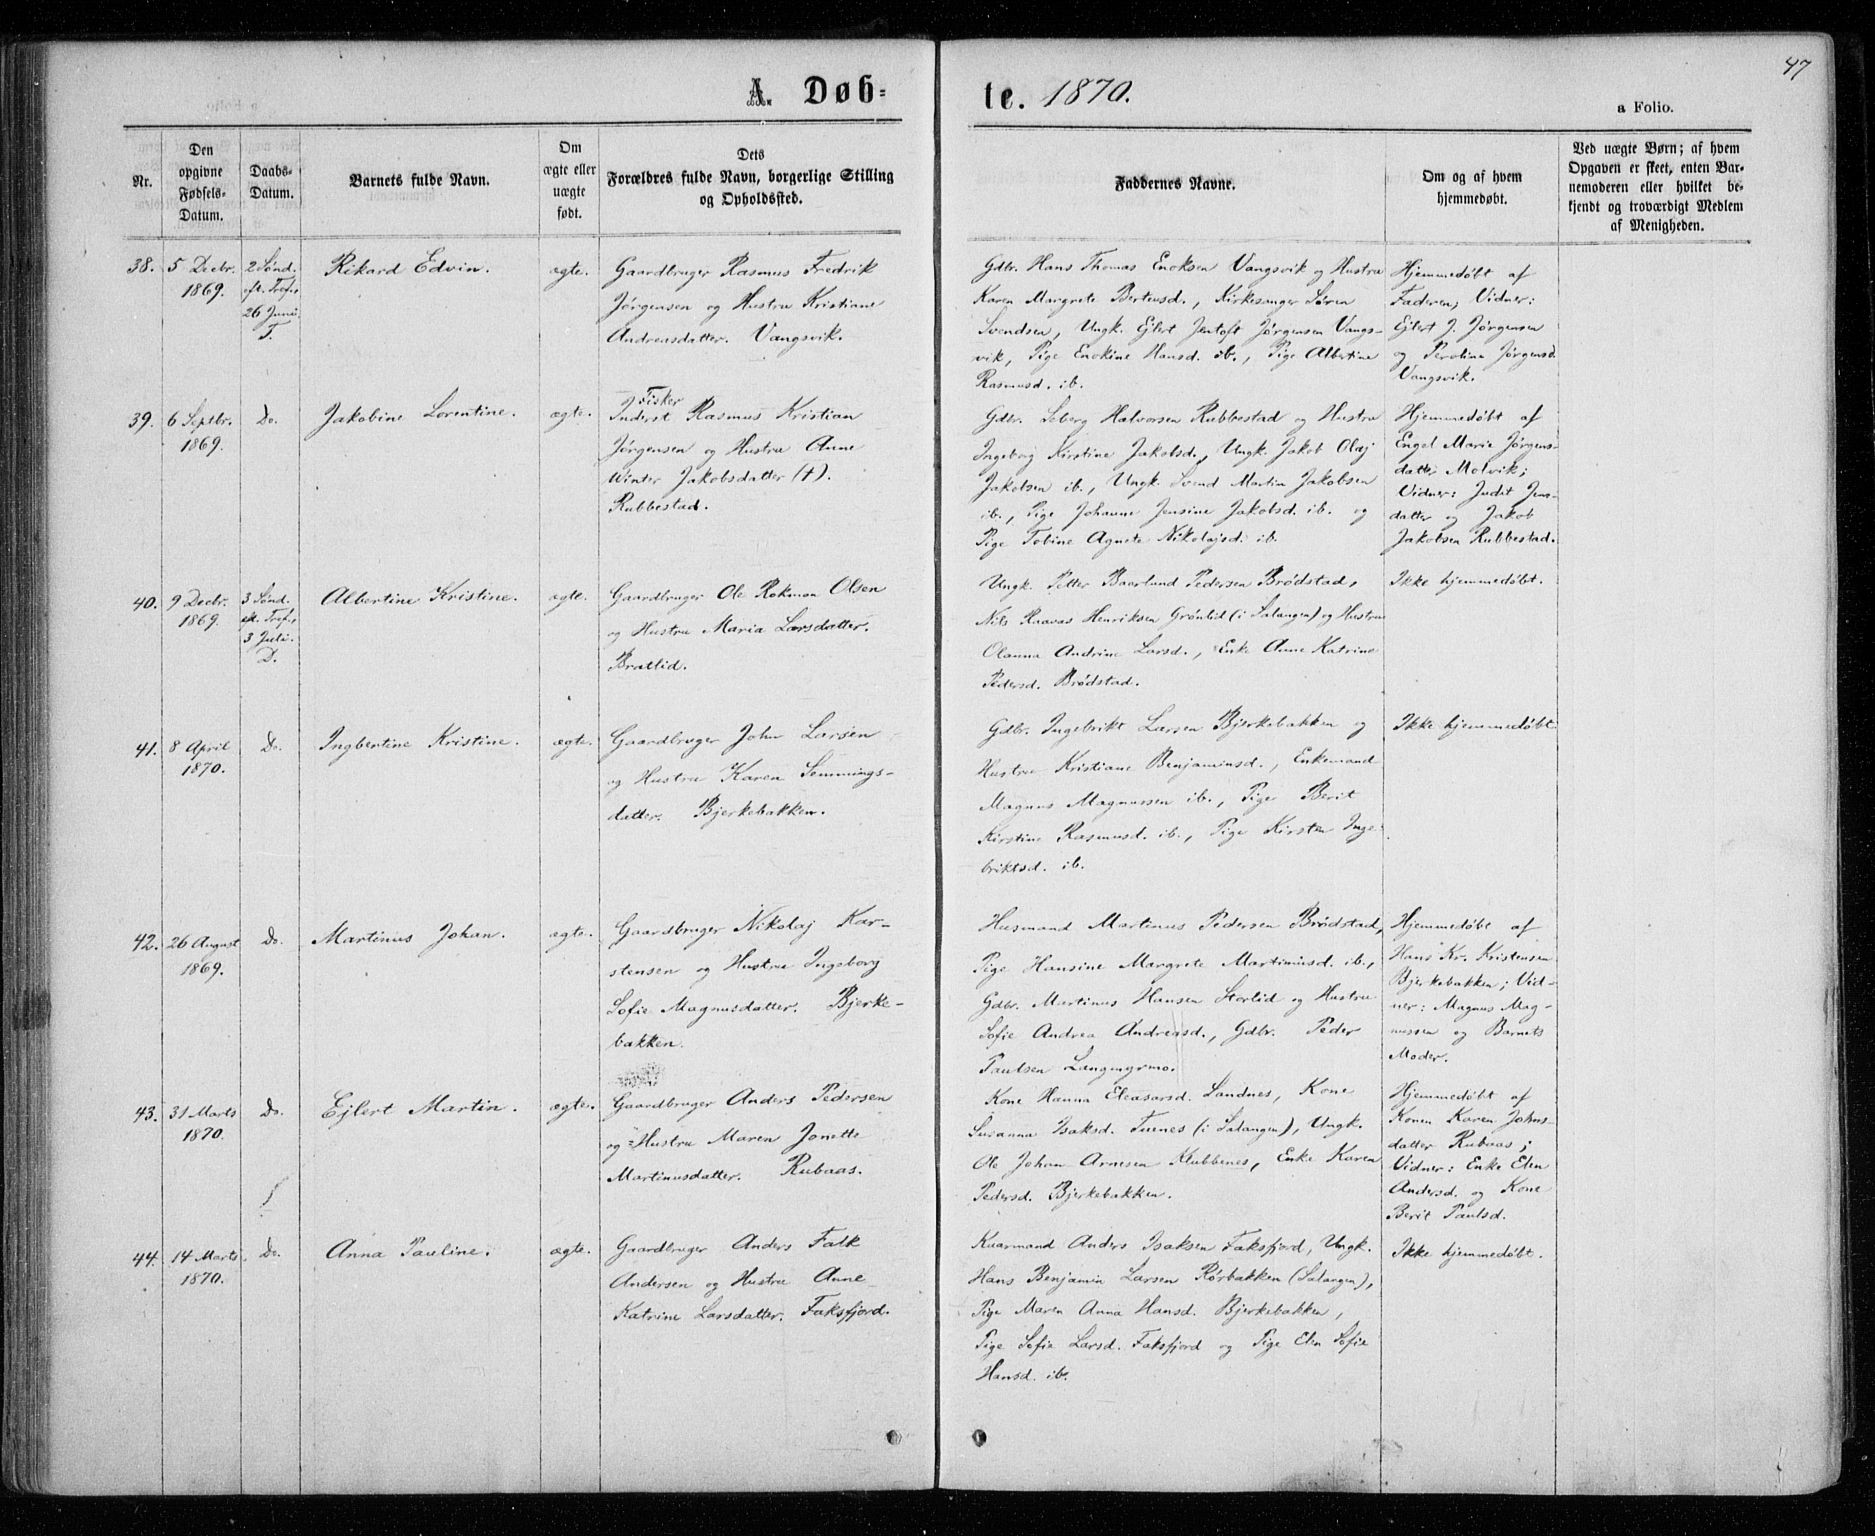 47
A. Døb= te. 1870.
a Folio.
Nr.
Den opgivne Fødsels-Datum.
Daabs-Datum.
Barnets fulde Navn.
Om ægte eller uægte født.
Dets Forældres fulde Navn, borgerlige Stilling og Opholdssted.
Faddernes Navne.
Om og af hvem hjemmedøbt.
Ved uægte Børn; af hvem Opgaven er skeet, enten Barnemoderen eller hvilket bekjendt og troværdigt Medlem af Menigheden.
38.
5 Decbr.
1869.
2 Sønd.
eft. Tref.,
26 Juni.
T.
Rikard Edvin.
ægte.
Gaardbruger Rasmus Fredrik
Jørgensen og Hustru Kristiane
Andreasdatter. Vangsvik.
Gdbr. Hans Thomas Enoksen Vangsvik og Hustru
Karen Margrete Berteusd., Kirkesanger Søren
Svendsen, Ungk. Ejlert Jentoft Jørgensen Vangs-
vik, Pige Enokine Hansd. ib., Pige Albertine
Rasmusd. ib.
Hjemmedøbt af
Faderen; Vidner:
Ejlert J. Jørgensen
og Peroline Jørgensd.
Vangsvik.
39.
6 Septbr.
1869.
Do.
Jakobine Lorentine.
ægte.
Fisker
Inderst Rasmus Kristian
Jørgensen og Hustru Anne
Winter Jakobsdatter (†).
Rubbestad.
Gdbr. Seberg Halvorsen Rubbestad og Hustru
Ingeborg Kirstine Jakobsd., Ungk. Jakob Olaj
Jakobsen ib., Ungk. Svend Martin Jakobsen
ib., Pige Johanne Jensine Jakobsd. ib. og
Pige Tobine Agnete Nikolajsd. ib.
Hjemmedøbt af
Engel Marie Jørgens-
datter Molvik;
Vidner: Judit Jens-
datter og Jakob
Jakobsen Rubbestad.
40.
9 Decbr.
1869.
3 Sønd.
eft. Tref.,
3 Juli.
D.
Albertine Kristine.
ægte.
Gaardbruger Ole Rokman Olsen
og Hustru Maria Larsdatter.
Bratlid.
Ungk. Petter Baarlund Pedersen Brødstad,
Nils Raavas Henriksen Grønlid (i Salangen) og Hustru
Olanna Andrine Larsd., Enke Anne Katrine
Pedersd. Brødstad.
Ikke hjemmedøbt.
41.
8 April
1870.
Do.
Ingbertine Kristine.
ægte.
Gaardbruger John Larsen
og Hustru Karen Semmings-
datter. Bjerkebakken.
Gdbr. Ingebrikt Larsen Bjerkebakken og
Hustru Kristiane Benjaminsd., Enkemand
Magnus Magnussen ib., Pige Berit
Kirstine Rasmusd. ib., Pige Kirsten Inge-
briktsd. ib.
Ikke hjemmedøbt
42.
26 August
1869.
Do.
Martinus Johan.
ægte.
Gaardbruger Nikolaj Kar-
stensen og Hustru Ingeborg
Sofie Magnusdatter. Bjerke-
bakken.
Husmand Martinus Pedersen Brødstad,
Pige Hansine Margrete Martinusd. ib.,
Gdbr. Martinus Hansen Storlid og Hustru
Sofie Andrea Andreasd., Gdbr. Peder
Paulsen Langmyrmo.
Hjemmedøbt af
Hans Kr. Kristensen
Bjerkebakken; Vid-
ner: Magnus Mag-
nussen og Barnets
Moder.
43.
31 Marts
1870.
Do.
Ejlert Martin.
ægte.
Gaardbruger Anders Pedersen
og Hustru Maren Jonette
Martinusdatter. Rubaas.
Kone Hanna Eleasarsd. Sandnes, Kone
Susanna Isaksd. Furnes (i Salangen), Ungk.
Ole Johan Arnesen Klubbenes, Enke Karen
Pedersd. Bjerkebakken.
Hjemmedøbt af
Konen Karen Johns-
datter Rubaas;
Vidner: Enke Elen
Andersd. og Kone
Berit Paulsd.
44.
14 Marts
1870.
Do.
Anna Pauline.
ægte.
Gaardbruger Anders Falk
Andersen og Hustru Anne
Katrine Larsdatter. Faksfjord.
Kaarmand Anders Isaksen Faksfjord, Ungk.
Hans Benjamin Larsen Rørbakken (Salangen),
Pige Maren Anna Hansd. Bjerkebakken,
Pige Sofie Larsd. Faksfjord og Pige Elen Sofie
Hansd. ib.
Ikke hjemmedøbt.